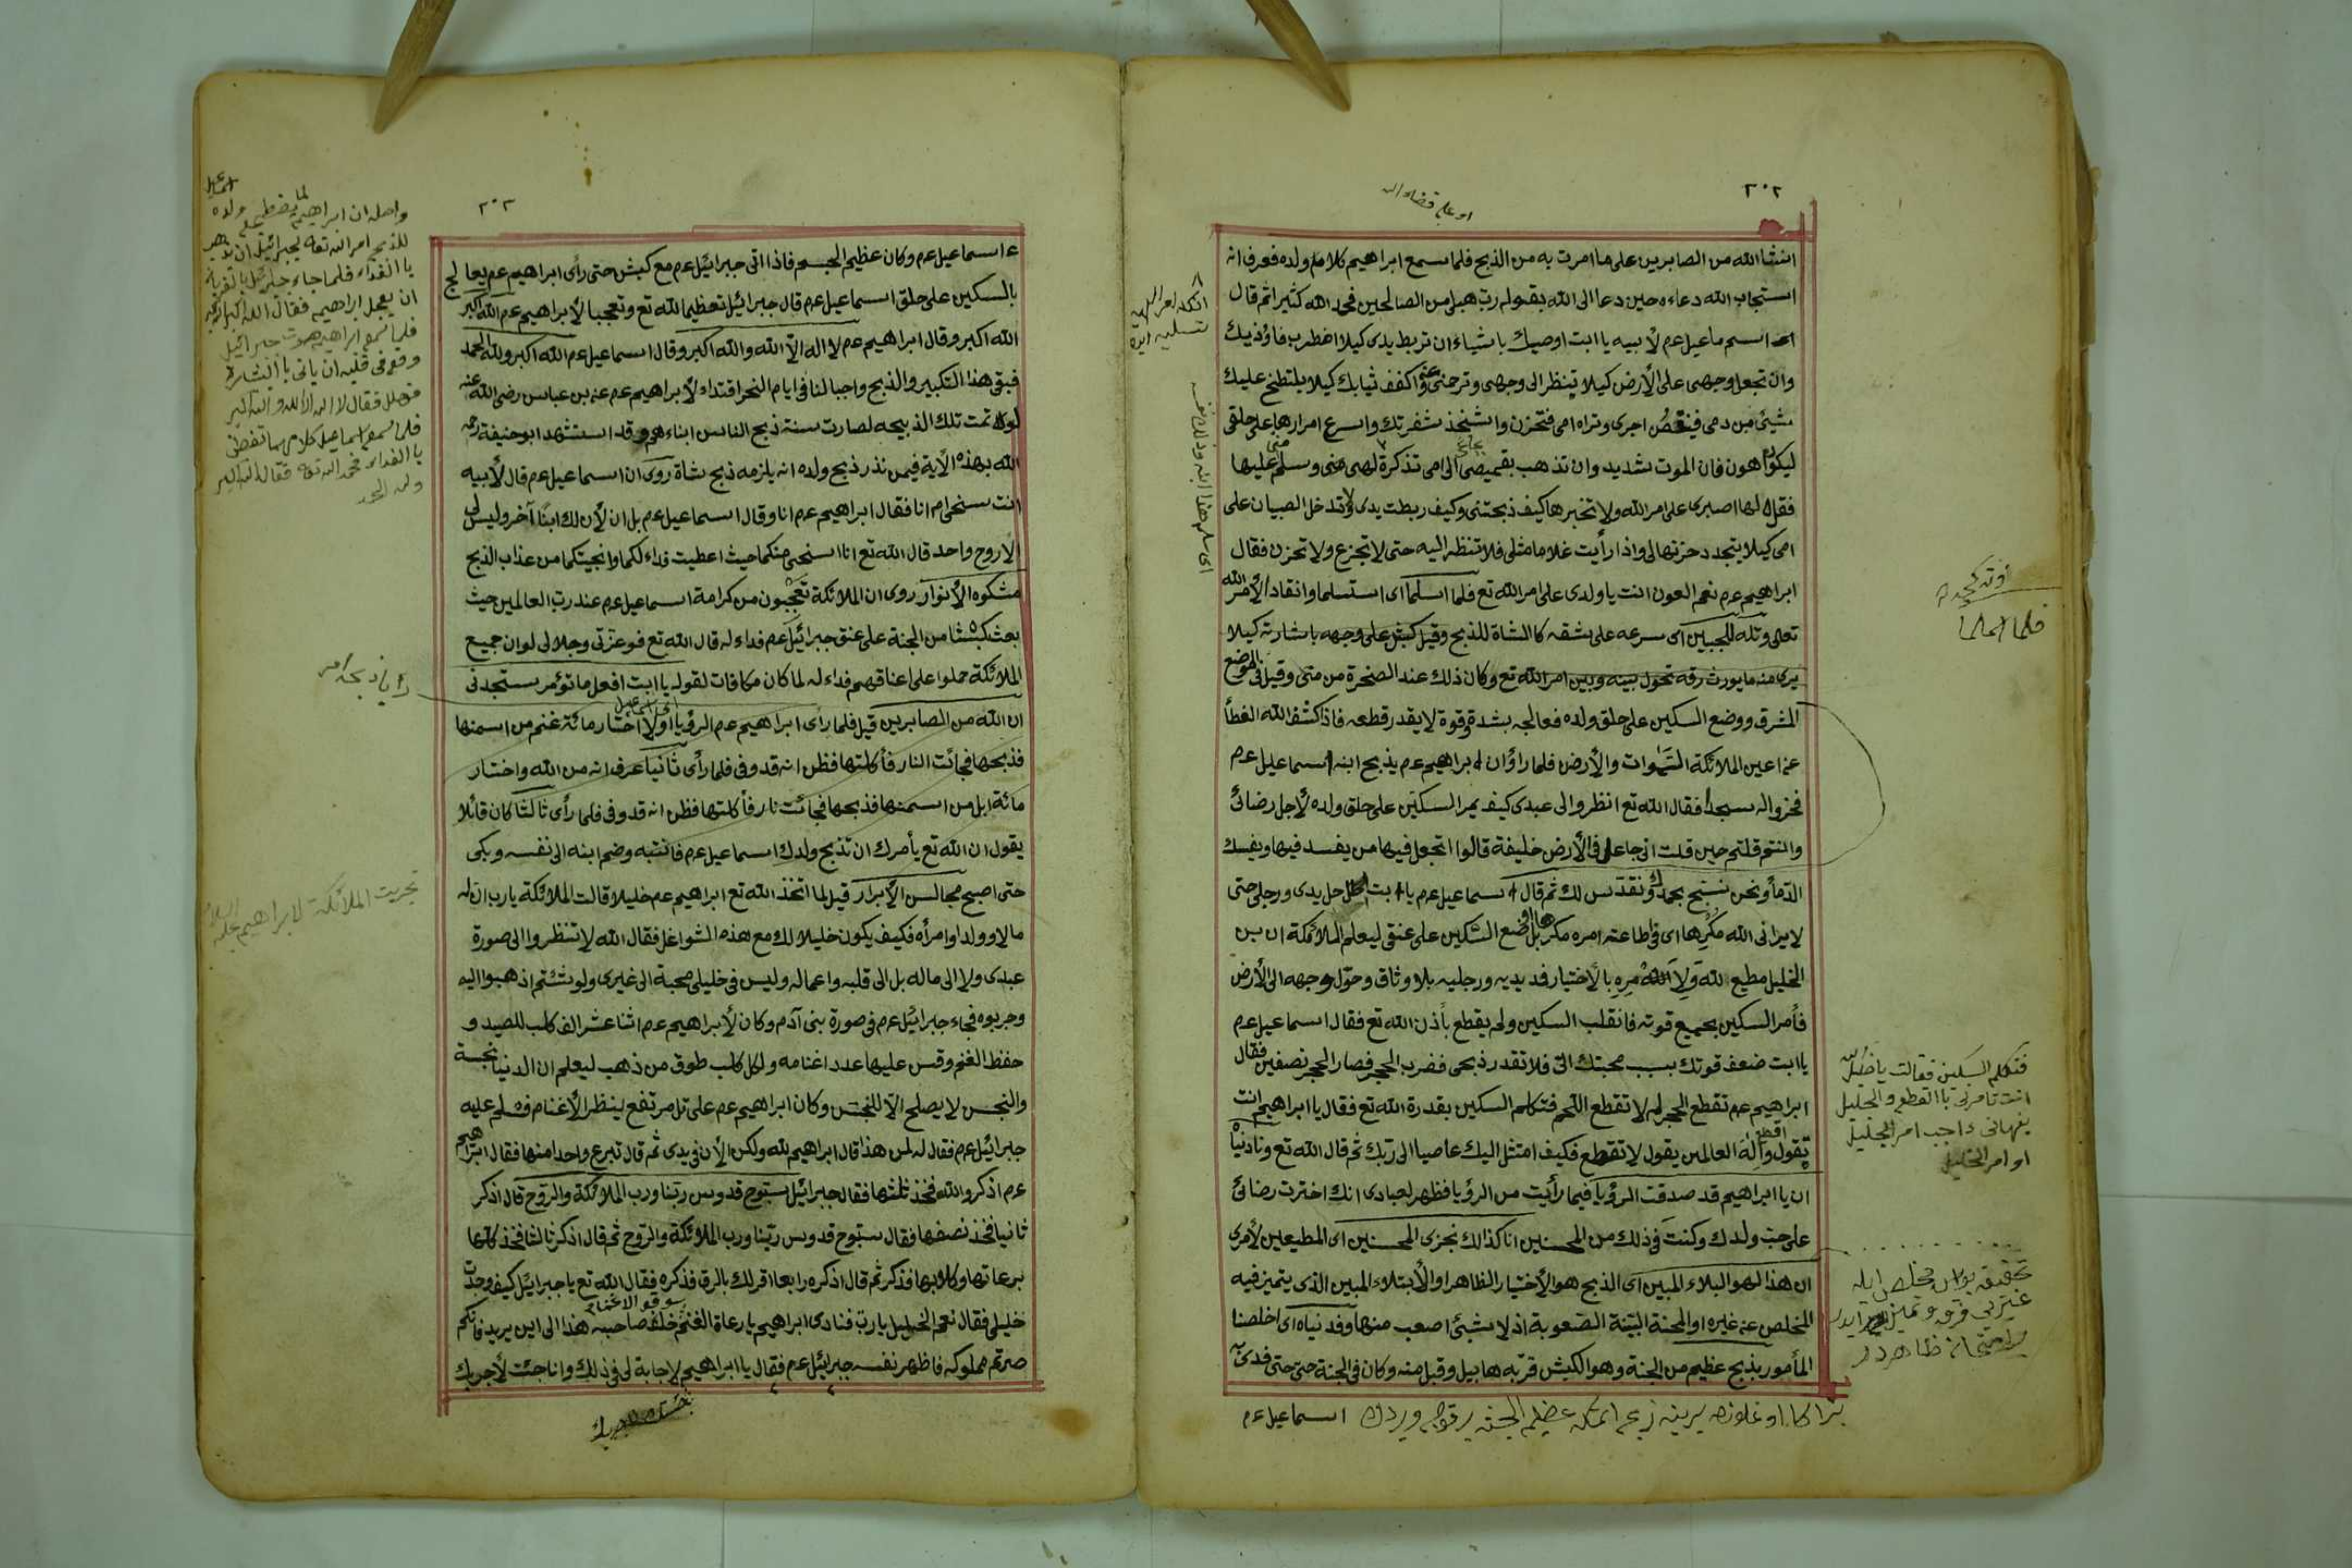 ٢٠٢
او على قضاء الله
انشا الله من الصابرين على ما امرت به من الذبح فلما سمع ابراهيم كلام ولده فعرف انه
استجاب الله دعاءه حين دعا الى الله بقوله رب هبلى من الصالحين فحمد الله كثيرا ثم قال
اسماعيل عم لأبيه يا ابت اوصيك باشياء ان تربط يدى كيلا اضطرب فاؤذيك
وان تجعل وجهى على الأرض كيلا تنظر الى وجهى وترحمنى واكفف ثيابك كيلا يلتطخ عليك
شيئ من دمى فينقص اجرى وتراه امى فتحزن واشخذ شفرتك واسرع امرارها على حلقى
ليكون اهون فان الموت شديد وان تذهب بقميصى الى امى تذكرة لهى منى وسلم منى عليها
فقل لها اصبرى على امر الله ولا تخبرها كيف ذبحتنى وكيف ربطت يدى ولا تدخل الصبيان على
امى كيلا يتجدد حزنها لى واذا رأيت غلاما مثلى فلا تنظر اليه حتى لا تجزع ولا تحزن فقال
ابراهيم عم نعم العون انت يا ولدى على امر الله تع فلما اسلما اى استسلما وانقادا لأمر الله
تعالى وتله للجبين اى سرعه على شقه كا الشاة للذبح وقيل كبش على وجهه باشارته كيلا
يرى منه ما يورث رقه تحول بينه وبين امر الله تع وكان ذلك عند الصخرة من منى وقيل فى الموضع
المشرق ووضع السكين على حلق ولده فعالجه بشدة وقوة لا يقدر قطعه فاذا كشف الله الغطأ
عن اعين الملائكة السموات والأرض فلما راؤ ان ابراهيم عم يذبح ابنه اسماعيل عم
فخروا له سجدا فقال الله تع انظروا الى عبدى كيف يمر السكين على حلق ولده لأجل رضائى
وانتم قلتم حين قلت انى جاعل فى الأرض خليفة قالوا اتجعل فيها من يفسد فيها ويفسك
الدمأ ونحن نسبح بحمدك ونقدس لك ثم قال اسماعيل عم يا ابت حل يدى ورجلى حتى
لا يرانى الله مكرها اى فى اطاعته امره مكرها بل اوضع السكين على عنقى ليعلم الملائكة ان بن
الخليل مطيع لله ولأمره بالأختيار فمد يديه ورجليه بلا وثاق وحول وجهه الى الأرض
فأمر السكين بجميع قوته فانقلب السكين ولم يقطع بأذن الله تع فقال اسماعيل عم
يا ابت ضعف قوتك بسبب محبتك الى فلا تقدر ذبحى فضرب الحجر فصار الحجر نصفين فقال
ابراهيم عم تقطع الحجر لم لا تقطع اللحم فتكلم السكين بقدرة الله تع فقال يا ابراهيم انت
تقول اقطع واله العالمين يقول لا تقطع فكيف امتثل اليك عاصيا الى ربك ثم قال الله تع وناديناه
ان يا ابراهيم قد صدقت الرؤيا فيما رأيت من الرؤيا فظهر لعبادى انك اخترت رضائى
على حب ولدك وكنت فى ذلك من المحسنين انا كذالك نجزى المحسنين اى المطيعين لأمرى
ان هذا لهو البلاء المبين اى الذبح هو الأختيار الظاهر او الأبتلاء المبين الذى يتميز فيه
المخلص عن غيره او المحنة البينة الصعوبة اذ لا شيئ اصعب منها وفديناه اى اخلصنا
المأمور بذبح عظيم من الجنة وهو الكبش قربه هابيل وقبل منه وكان فى الجنة حى حتى فدى
اسماعيل عم
فلما اسلما
فتكلم السكين فقالت يا خليل الله
انت تأمرنى با القطع والجليل
ينهانى واجب امر الجليل
او امر الخليل
٢٠٣
ء اسماعيل عم وكان عظيم الجسم فاذا اتى جبرائيل عم مع كبش حتى رأى ابراهيم عم يعالج
بالسكين على حلق اسماعيل عم قال جبرائيل تعظيما لله تع وتعجبا لأبراهيم عم الله اكبر
الله اكبر وقال ابراهيم عم لا اله الا الله والله اكبر وقال اسماعيل عم الله اكبر ولله الحمد
فبقى هذا التكبير والذبح واجبا لنا فى ايام النحر اقتداء لأبراهيم عم عن بن عباس رضى الله عنه
لولا تمت تلك الذبيحه لصارت سنة ذبح الناس ابناءهم وقد استشهد ابو حنيفة رحم
الله بهذه الأية فيمن نذر ذبح ولده انه يلزمه ذبح شاة روى ان اسماعيل عم قال لأبيه
انت سنحى ام انا فقال ابراهيم عم انا وقال اسماعيل عم بل ان لأن لك ابنا آخر وليس لى
الا روح واحد قال الله تع انا اسنحى منكما حيث اعطيت فداء لكما وانجيتكما من عذاب الذبح
مشكوه الأنوار روى ان الملائكة تعجبون من كرامة اسماعيل عم عند رب العالمين حيث
بعث كبشا من الجنة على عنق جبرائيل عم فداء له قال الله تع فوعزتى وجلالى لو ان جميع
الملائكة حملوا على اعناقهم فداء له لما كان مكافات لقوله يا ابت افعل ما تؤمر ستجدنى
ان الله من الصابرين قيل فلما رأى ابراهيم عم الرؤيا اولا اختار مائة غنم من اسمنها
فذبحها فجائت النار فأكلتها فظن انه قد وفى فلما رأى ثانيا عرف انه من الله واختار
مائة ابل من اسمنها فذبحها فجائت نار فأكلتها فظن انه قد وفى فلما رأى ثالثا كان قائلا
يقول ان الله تع يأمرك ان تذبح ولدك اسماعيل عم فانتبه وضم ابنه الى نفسه وبكى
حتى اصبح مجالس الأبرار قيل لما اتخذ الله تع ابراهيم عم خليلا قالت الملائكة يارب ان له
مالا وولدا وامرأه فكيف يكون خليلا لك مع هذه الشواغل فقال الله لا تنظروا الى صورة
عبدى ولا الى ماله بل الى قلبه واعماله وليس فى خليلى محبة الى غيرى ولو شئتم اذهبوا اليه
وجربوه فجاء جبرائيل عم فى صورة بنى آدم وكان لأبراهيم عم اثنا عشر الف كلب للصيد و
حفظ الغنم وقس عليها عدد اغنامه ولكل كلب طوق من ذهب ليعلم ان الدنيا نجسة
والنجس لا يصلح الا للنجس وكان ابراهيم عم على تل مرتفع ينظر الأغنام فسلم عليه
جبرائيل عم فقال له لمن هذا قال ابراهيم لله ولكن الأن فى يدى ثم قال تبرع واحدا منها فقال ابراهيم
عم اذكروا الله فخذ ثلثها فقال جبرائيل سبوح قدوس ربنا ورب الملائكة والروح قال اذكر
ثانيا فخذ نصفها فقال سبوح قدوس ربنا ورب الملائكة والروح ثم قال اذكر ثالثا فخذ كلها
برعاتها وكلابها فذكر ثم قال اذكره رابعا اقر لك بالرق فذكره فقال الله تع يا جبرائيل كيف وجدت
خليلى فقال نعم الخليل يا رب فنادى ابراهيم يا رعاة الغنم سوقوا الاغنام خلف صاحبه هذا الى اين يريد فانكم
صرتم مملوكه فاظهر نفسه جبرائيل عم فقال يا ابراهيم لا حاجة لى فى ذلك وانا جئت لأجربك
واصله ان ابراهيم لما
للذبح امر الله تعه لجبرائيل ان
با الفداء فلما جاء جبرائيل
ان يعجل ابراهيم فقال الله اكبر الله اكبر
فلما سمع ابراهيم صوت جبرائيل
وقع فى قلبه ان يأتى با البشارة
فهلل فقال لا اله الا الله والله اكبر
فلما سمع اسماعيل كلامهما تفطن
با الفداء فحمد الله تعه فقال الله اكبر
ولله الحمد
تجربت الملائكة لابراهيم عليه السلام